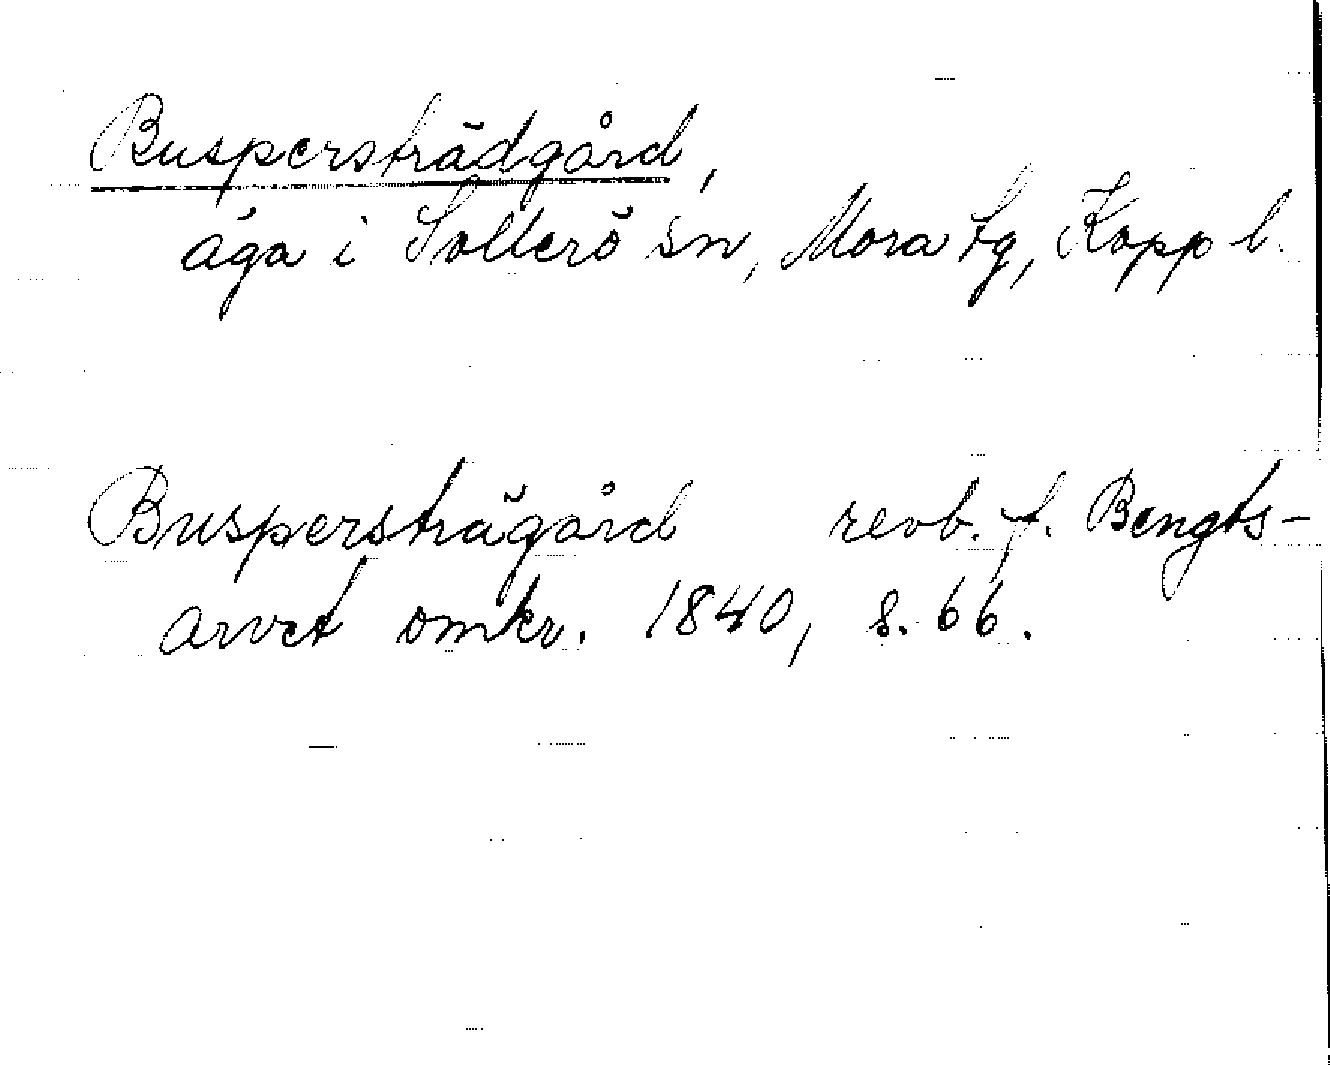 Buspersträdgård,
äga i Sollerö sn, Mora tg, Kopp l.
Buspersträgård revb. f. Bengts-
arvet omkr. 1840, s. 66.